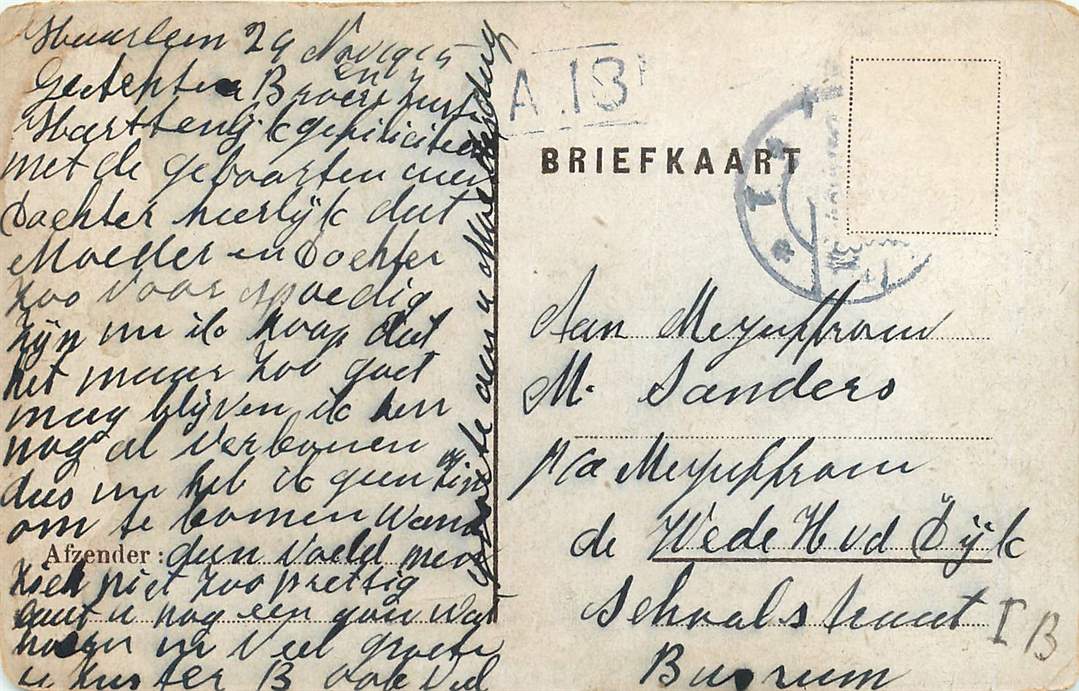 Haarlem 29 Nov 1915
Geachten Broer en Zuster
Harttenlijk gefiliciteer
met de geboorten uwer
Dochter heerlijk dat
Moeder en Dochter
zoo voorspoedig
zijn nu ik hoop dat
het maar zoo goet
mag blijven ik ben
nog al verbonen
dus nu heb ik geen tijd
om te komen want
dan voeld men
zich niet zoo prettig
laat u nog een gou wat
hooren nu Veel groete
u zuster B ook Vel
groete aan u Moeder
A.13
BRIEFKAART
Aan Mejuffrouw
M. Sanders
p/a Mejuffrouw
de Wede H vd Dijk
Schoolstraat I B
Bussum
Afzender: